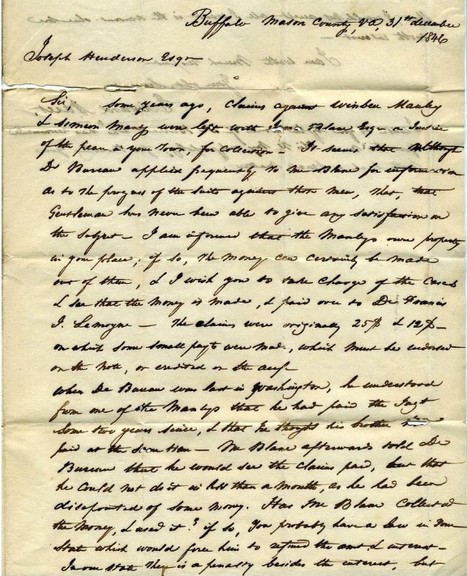 Buffalo Mason County, Va 31st december
1846
Joseph Henderson Esqr
Sir, Some years ago, Claims against Winslow Manly
& Simeon Manly were left with Blane Esqr a Justice
of the peace in your Town, for collection. It seems that although
Dr Bureau applied frequently to Mr Blane for information
as to the progress of the suits against these men, that, that
Gentleman has never been able to give any satisfaction on
the subject — I am informed that the Manlys own property
in your place; if so, the money can certainly be made
out of them, & I wish you to take charge of the Cases
& see that the money is made, & paid over to Dr Francis
J. Lemoyne — The claims were originally 25$ & 12$ —
on which some small paymts were made, which must be endorsed
on the note, or credited on the acct.
When Dr Bureau was last in Washington, he understood
from one of the Manlys that he had paid the
some two years since, & that he thought his brother
paid at the same time — Mr Blane afterwards told Dr
Bureau that he would see the claims paid, but that
he could not do it in less than a month, as he had been
disappointed of some money. Has Mr Blane collected
the money, & used it? if so, you probably have a law in your
State which would force him to refund the amt & interest —
In our state there is a penalty besides the interest, but